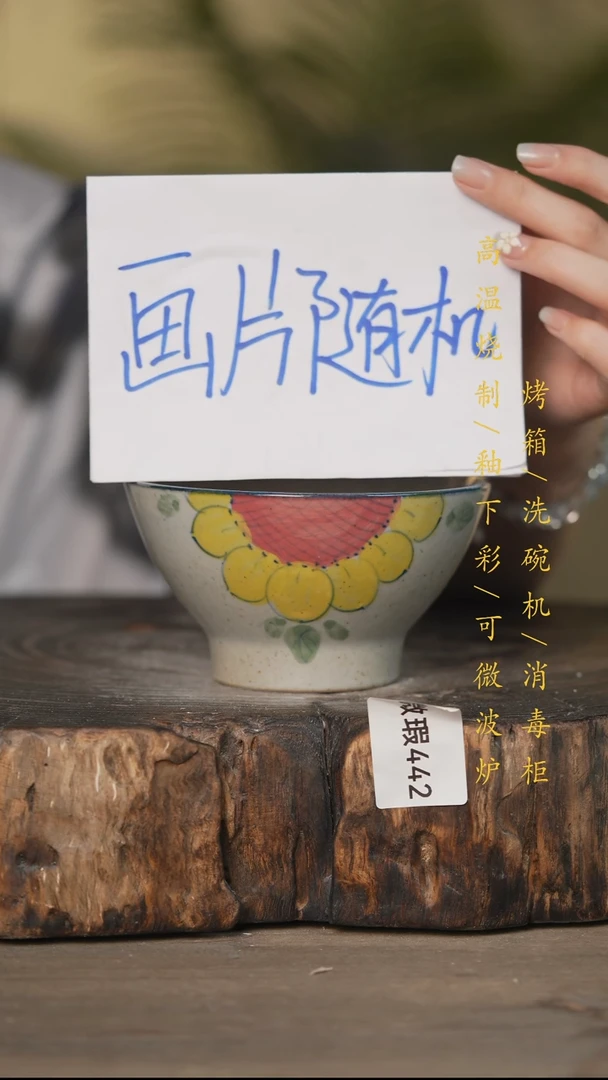 画片随机
高温烧制/釉下彩/可微波炉
烤箱/洗碗机/消毒柜
微瑕442